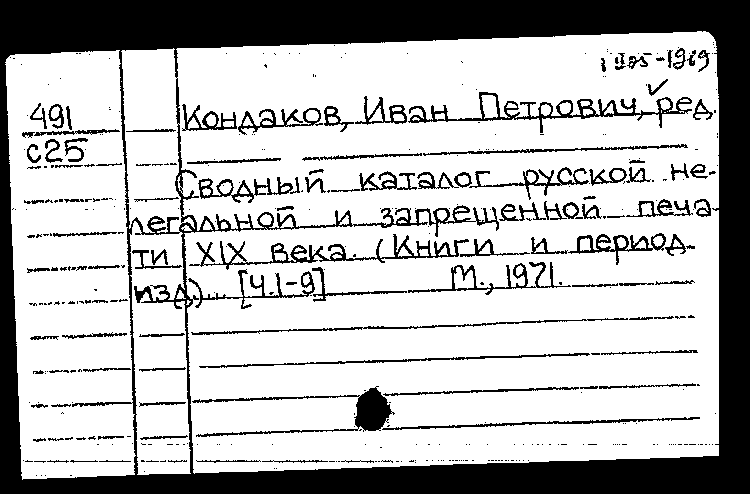 1905-1969
491 Кондаков, Иван Петрович, ред.
с25
Сводный каталог русской не-
легальной и запрещенной печа-
ти XIX века. (Книги и период.
изд.)... [Ч.1-9] М., 1971.